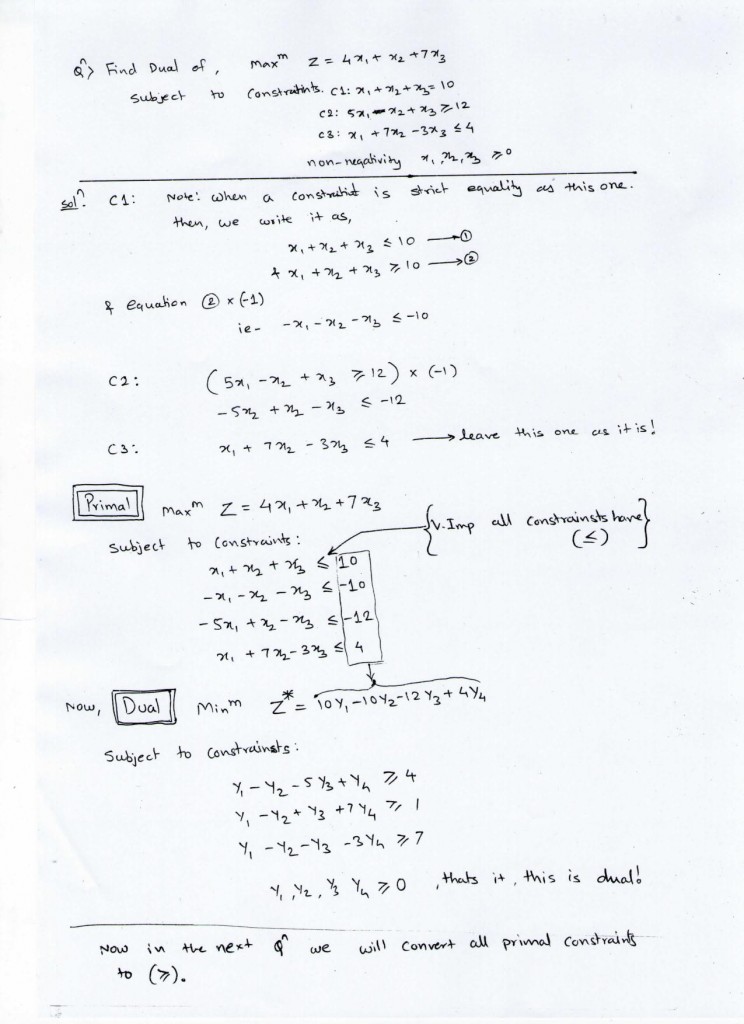 Qⁿ> Find Dual of, maxᵐ Z = 4x₁ + x₂ + 7x₃
subject to Constratints. C1: x₁ + x₂ + x₃ = 10
C2: 5x₁ - x₂ + x₃ ≥ 12
C3: x₁ + 7x₂ - 3x₃ ≤ 4
non-negativity x₁, x₂, x₃ ≥ 0
solⁿ. C1: Note: when a constratint is strict equality as this one.
then, we write it as,
x₁ + x₂ + x₃ ≤ 10 → ①
& x₁ + x₂ + x₃ ≥ 10 → ②
& equation ② × (-1)
ie- -x₁ - x₂ - x₃ ≤ -10
C2: (5x₁ - x₂ + x₃ ≥ 12) × (-1)
-5x₂ + x₂ - x₃ ≤ -12
C3: x₁ + 7x₂ - 3x₃ ≤ 4 → leave this one as it is!
Primal maxᵐ Z = 4x₁ + x₂ + 7x₃
{V. Imp all constrainsts have}
subject to constraints:
(≤)
x₁ + x₂ + x₃ ≤ 10
-x₁ - x₂ - x₃ ≤ -10
-5x₁ + x₂ - x₃ ≤ -12
x₁ + 7x₂ - 3x₃ ≤ 4
Now, Dual Minᵐ Z* = 10Y₁ - 10Y₂ - 12Y₃ + 4Y₄
Subject to constrainsts:
Y₁ - Y₂ - 5Y₃ + Y₄ ≥ 4
Y₁ - Y₂ + Y₃ + 7Y₄ ≥ 1
Y₁ - Y₂ - Y₃ - 3Y₄ ≥ 7
Y₁, Y₂, Y₃ Y₄ ≥ 0 , thats it, this is dual!
Now in the next Qⁿ we will convert all primal constraints
to (≥).